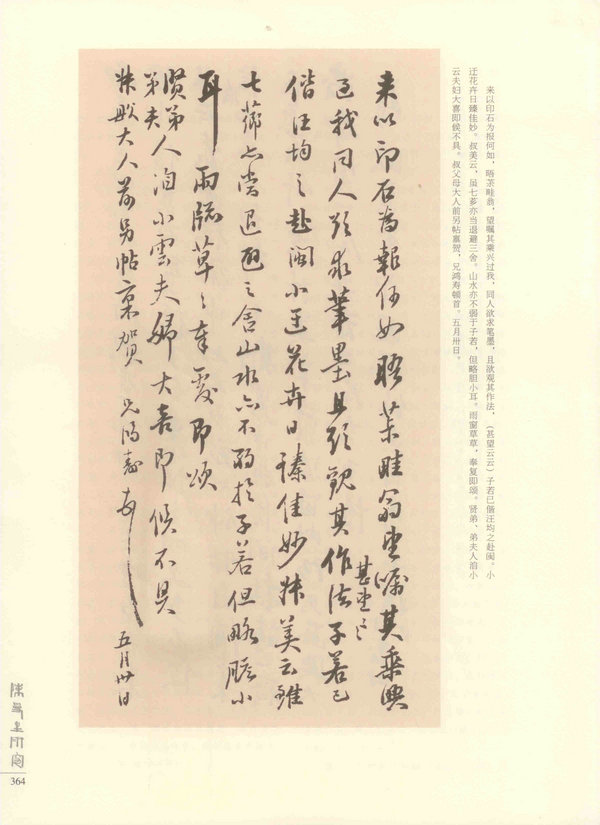 来以印石为报何如，晤茶畦翁，望嘱其乘兴过我，同人欲求笔墨，且欲观其作法，（甚望云云）子若已偕汪均之赴闽。小
迂花卉日臻佳妙。叔美云，虽七芗亦当退避三舍。山水亦不弱于子若，但略胆小耳。雨窗草草，奉复即颂。贤弟、弟夫人洎小
云夫妇大喜即候不具。叔父母大人前另帖禀贺，兄鸿寿顿首。五月卅日。
来以印石為報何如晤茶畦翁望嘱其乘興
甚望云々
過我同人欲求筆墨且欲觀其作法子若已
偕汪均之赴閩小迂花卉日臻佳妙叔美云雖
七薌亦當退避三舍山水亦不弱於子若但略膽小
耳 雨牕草々奉覆即頌
賢弟
弟夫人洎小雲夫婦大喜即候不具
叔父母大人前另帖稟賀 兄鴻壽頓首 五月卅日
364